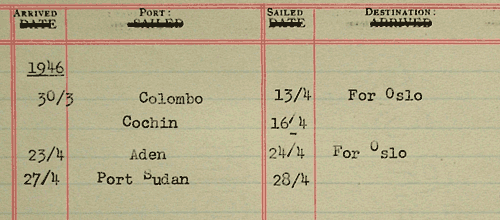 ARRIVED PORT: SAILED DESTINATION:
DATE SAILED DATE ARRIVED
1946
30/3 Colombo 13/4 For Oslo
Cochin 16/4
23/4 Aden 24/4 For Oslo
27/4 Port Sudan 28/4